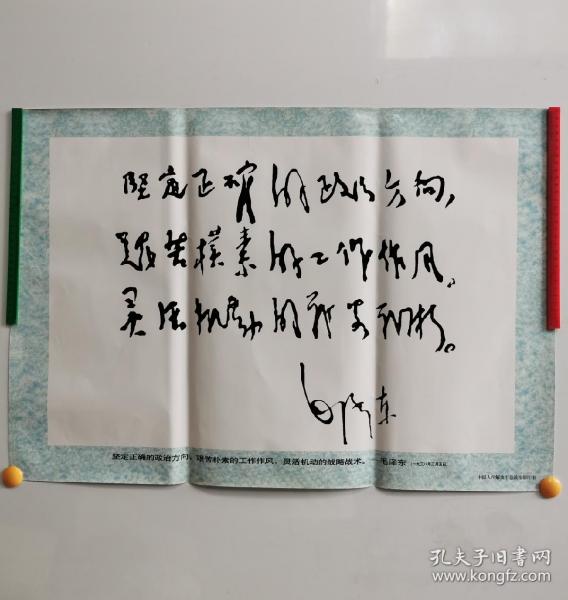 坚定正确的政治方向，
艰苦朴素的工作作风。
灵活机动的战略战术。
毛泽东
坚定正确的政治方向，艰苦朴素的工作作风，灵活机动的战略战术。 毛泽东 （一九三八年三月五日）
孔夫子旧书网
www.kongfz.com